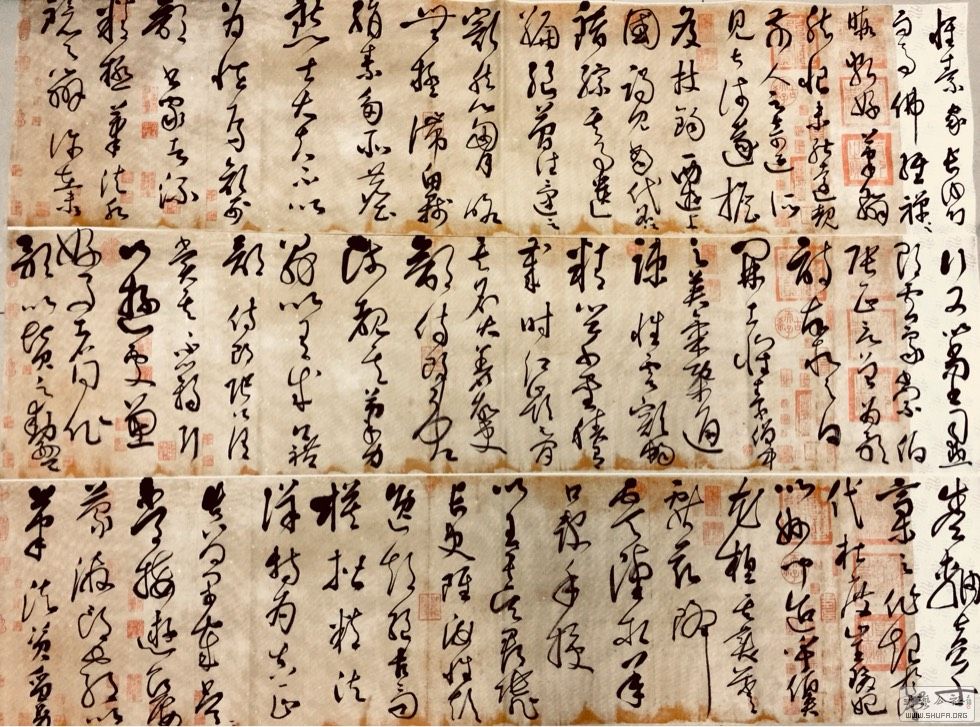 懷素家長沙幼
而事佛經禪之
暇頗好筆翰
然恨未能遠覩
前人之奇迹所
見甚淺遂擔
笈杖錫西遊上
國謁見當代名
公錯綜其事遺
編絕簡往往遇之
豁然心胸略
無疑滯魚牋
絹素多所塵
點士大夫不以
為怪焉顏刑
部書家者流
精極筆法水
鏡之辨許在末
行又以尚書司勳
郎盧象小宗伯
張正言曾為歌
詩故敘之曰
開士懷素僧中
之英氣概通
疏性靈豁暢
精心草聖積有
歲時江嶺之間
其名大著故吏
部侍郎韋公
陟覩其筆力
勗以有成今禮
部侍郎張公謂
賞其不羈引
以遊處兼
好事者同作
歌以贊之動盈
卷軸夫草
稾之作起於漢
代杜度崔瑗始
以妙聞迨乎伯英
尤擅其美羲
獻茲降
虞陸相承
口訣手授
以至於吳郡張旭
長史雖姿性顛
逸超絕古今而
模楷精法
詳特為真正
真卿早歲常
接遊居屢
蒙激昂教以
筆法資質劣
WWW.SHUFA.ORG